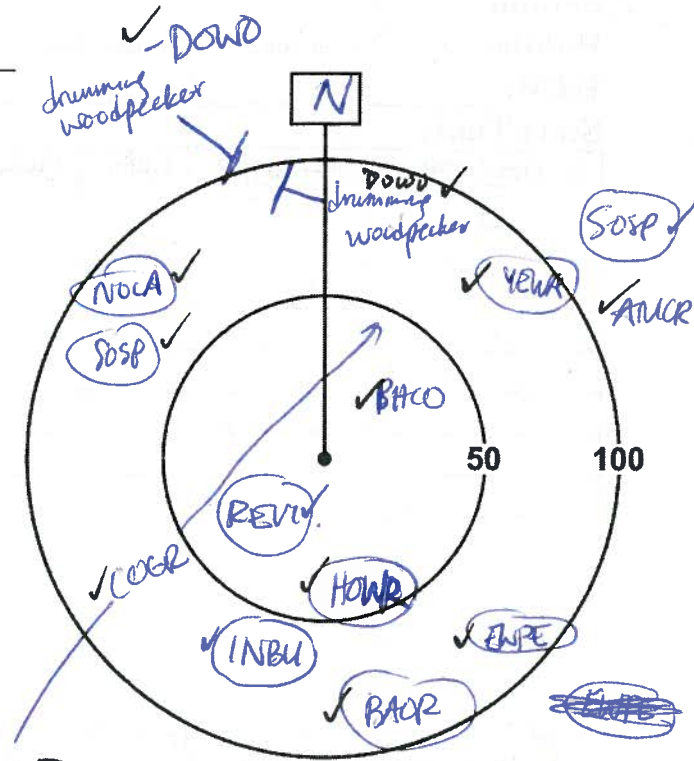 ✓-DOWO
drumming
woodpecker
N
DOWO ✓
drumming
woodpecker
SOSP ✓
NOCA ✓
✓ YEWA
✓AMCR
SOSP ✓
✓BHCO
50
100
REVI✓
✓COGR
✓ HOWR
✓ INBU
✓ EWPE
✓ BAOR